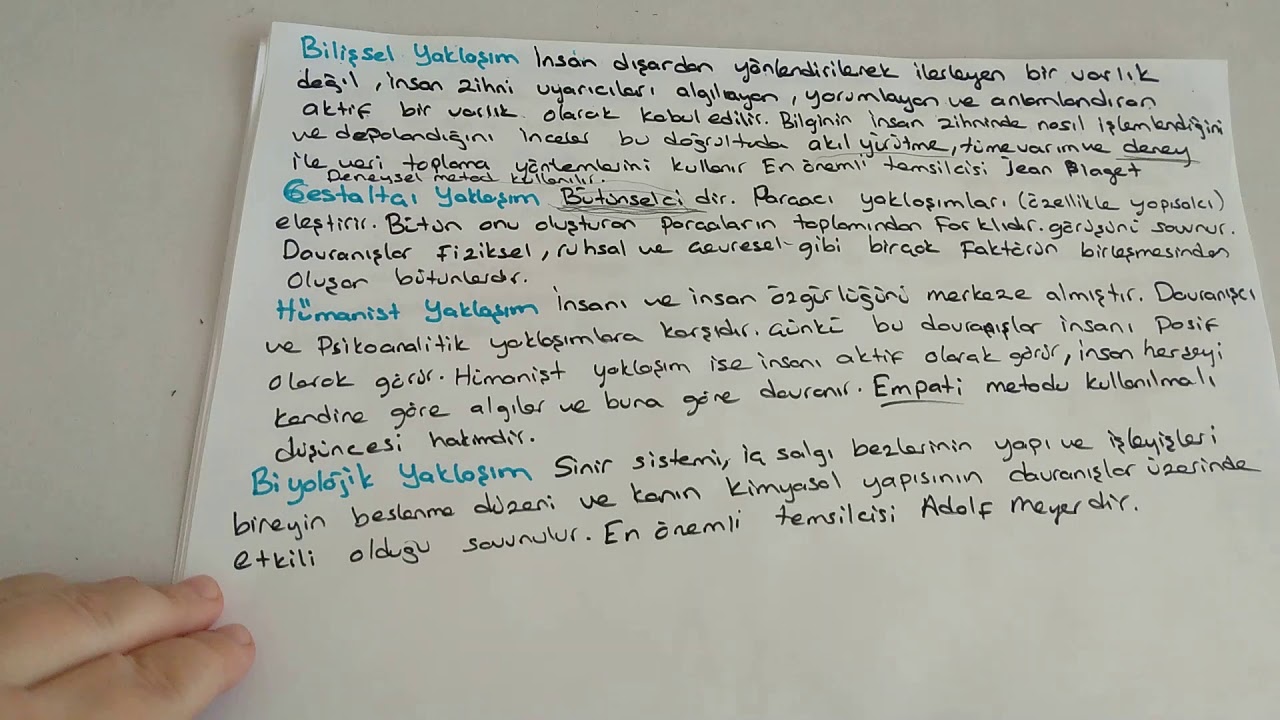 Bilişsel Yaklaşım İnsan dışardan yönlendirilerek ilerleyen bir varlık
değil, insan zihni uyarıcıları algılayan, yorumlayan ve anlamlandıran
aktif bir varlık olarak kabul edilir. Bilginin insan zihninde nasıl işlemlendiğini
ve depolandığını inceler bu doğrultuda akıl yürütme, tümevarım ve deney
ile veri toplama yöntemlerini kullanır En önemli temsilcisi Jean Piaget
Deneysel metod kullanılır.
Gestaltçı Yaklaşım Bütünselci dir. Parçacı yaklaşımları (özellikle yapısalcı)
eleştirir. Bütün onu oluşturan parçaların toplamından farklıdır. görüşünü savunur.
Davranışlar fiziksel, ruhsal ve çevresel gibi birçok faktörün birleşmesinden
oluşan bütünlerdir.
Hümanist Yaklaşım İnsanı ve insan özgürlüğünü merkeze almıştır. Davranışçı
ve Psikoanalitik yaklaşımlara karşıdır. Çünkü bu davranışlar insanı pasif
olarak görür. Hümanist yaklaşım ise insanı aktif olarak görür, insan herşeyi
kendine göre algılar ve buna göre davranır. Empati metodu kullanılmalı
düşüncesi hakimdir.
Biyolojik Yaklaşım Sinir sistemi, iç salgı bezlerinin yapı ve işleyişleri
bireyin beslenme düzeni ve kanın kimyasal yapısının davranışlar üzerinde
etkili olduğu savunulur. En önemli temsilcisi Adolf Meyer dir.